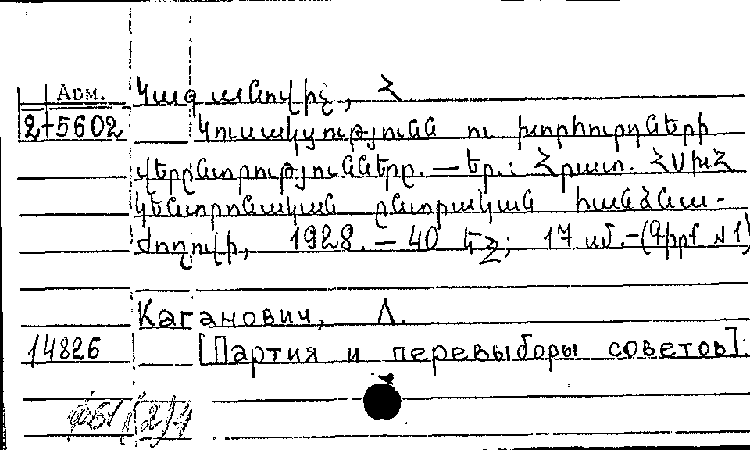 Арм.
Կագանովիչ, Հ
2-5602
Կուսակցությունն ու խորհուրդների
վերընտրությունները. — Եր.: Հրատ. ՀՍԽՀ
կենտրոնական ընտրական հանձնա-
ժողովի, 1928. — 40 եջ; 17 սմ. — (Գիրք №1)
Каганович, Л.
14826
[Партия и перевыборы советов].